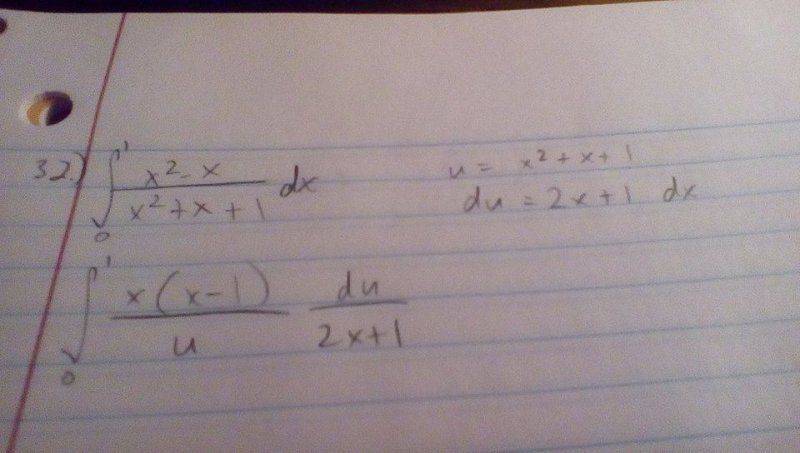 32.) ∫₀¹ (x² - x)/(x² + x + 1) dx
u = x² + x + 1
du = 2x + 1 dx
∫₀¹ x(x-1)/u du/(2x+1)